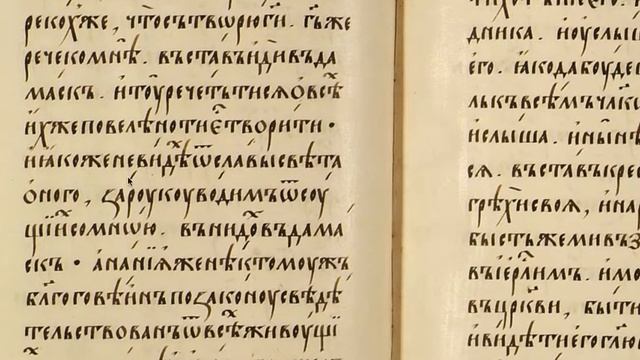 рекохже, чтосътворюги. гь҃же
речекомнѣ. въставъидивъда
маскъ. итоуречетьтисяовсѣ
ихжеповелѣнотиестворити.
иꙗкоженевидѣхѿславысвѣта
оного, зароукоуводимъѿсоу
щиихсомною. внидовъдама
скъ. ананіꙗженѣктомоужъ
бл҃гоговѣинъпозаконоусвѣдѣ
тельствованъѿвсѣхживоущіи
дника. иоуслыш
его. ꙗкодабоуде
лыкъвсѣмъчл҃ко
ислыша. инынѣ
ся. въставъкрес
грѣхисвоя, инар
быстьжемивъз
въіер҃лим. имо
въцркви, быти
ивидѣтиегоглю